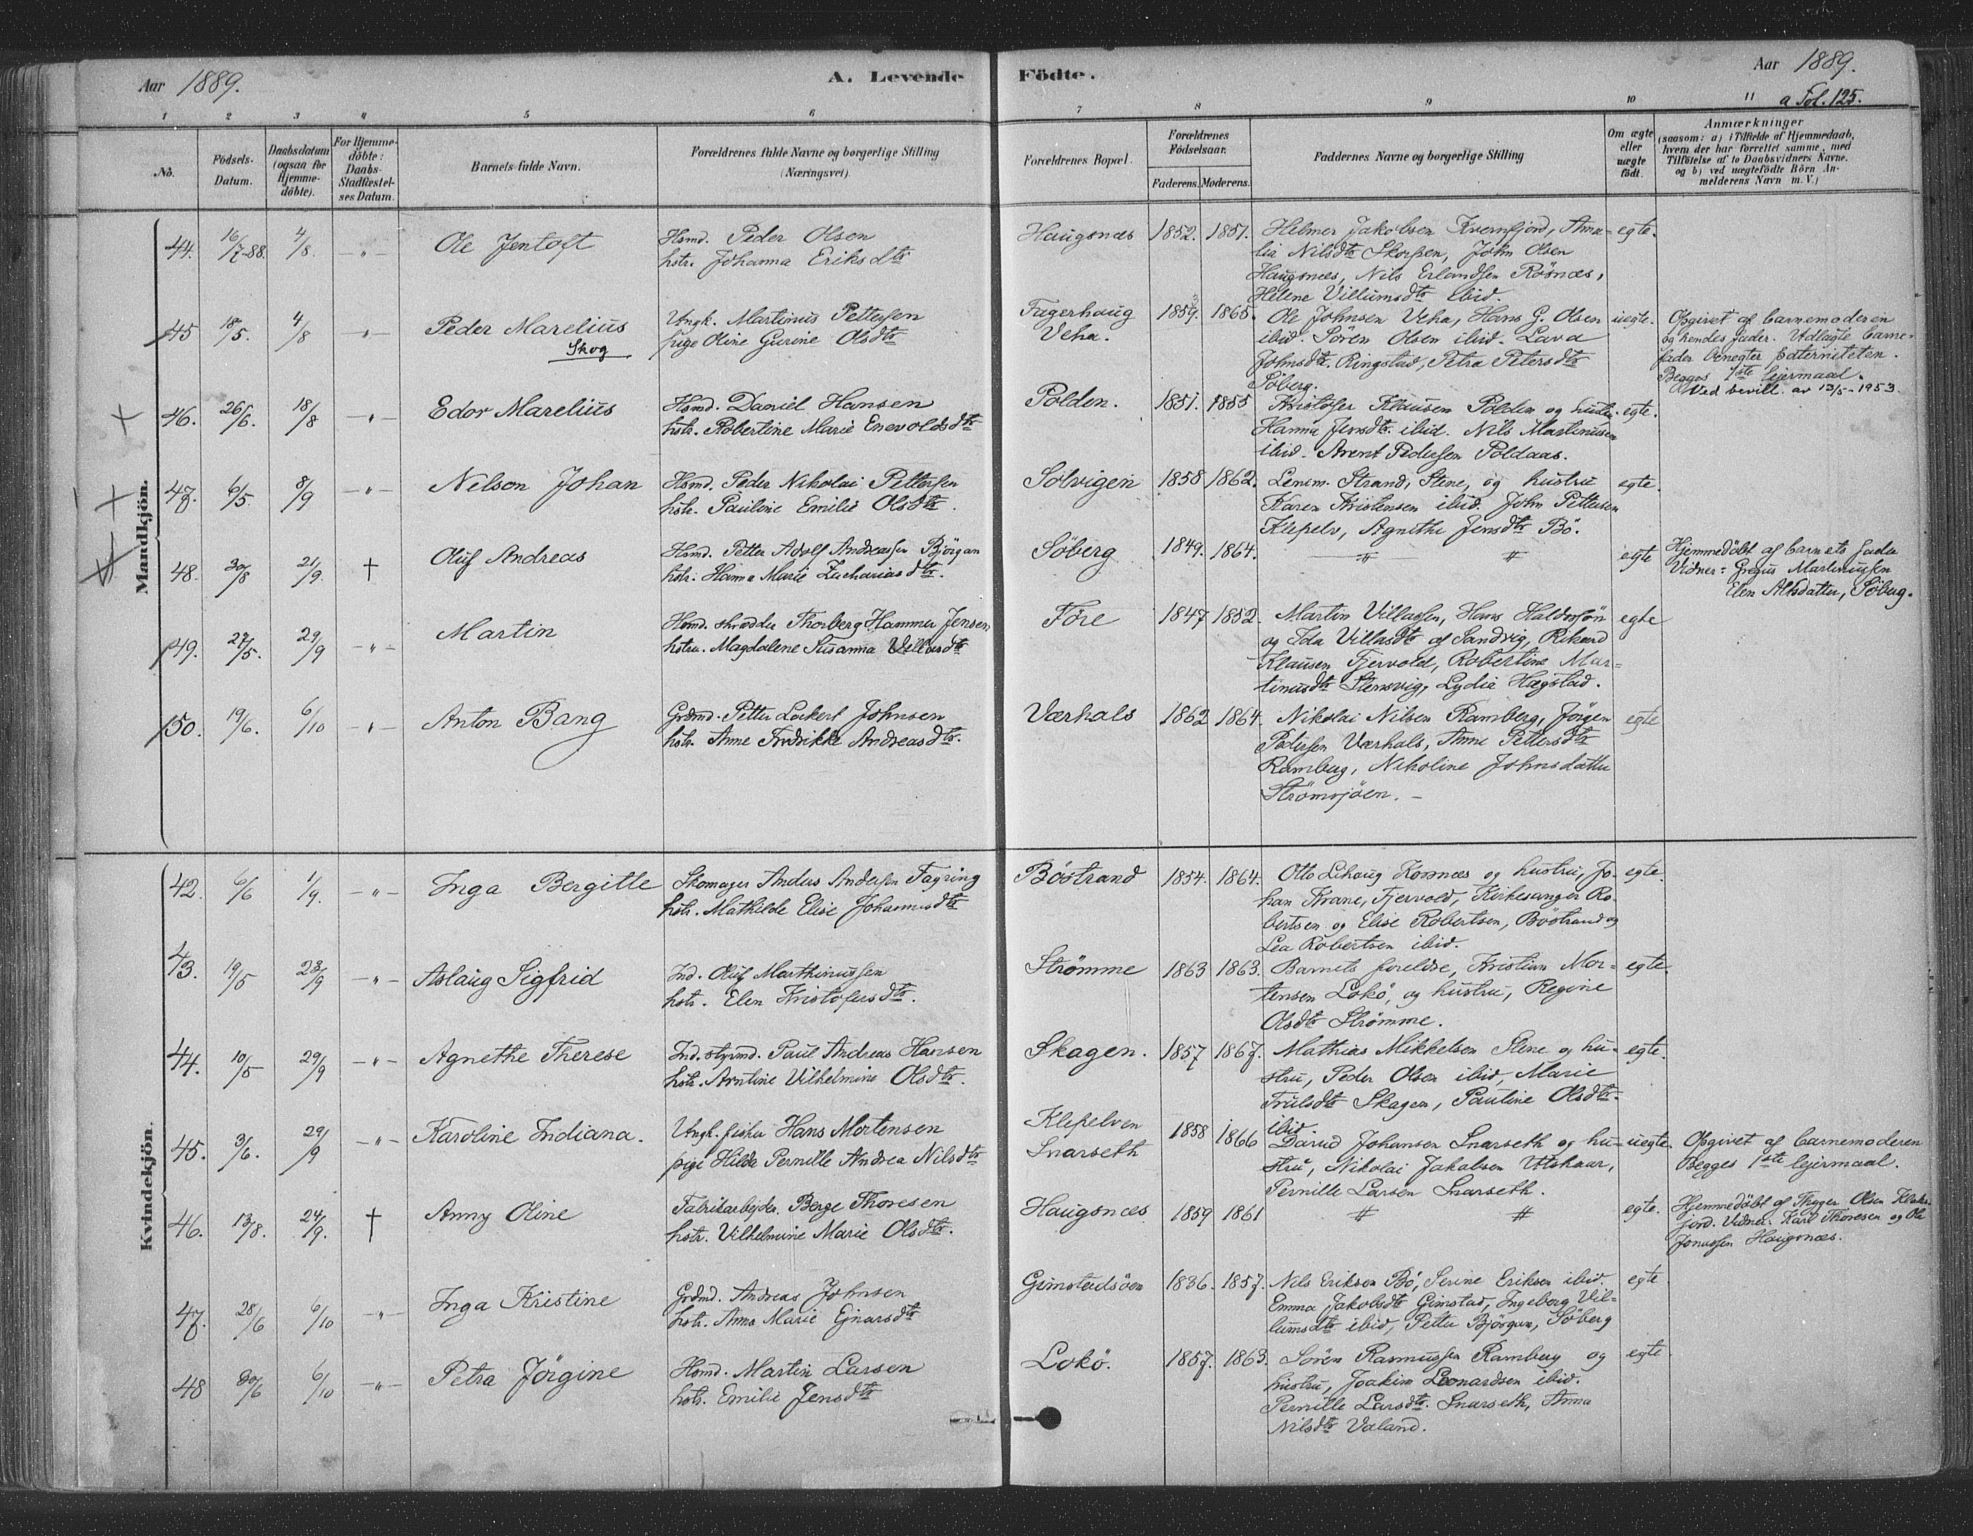 Aar 1889.
A. Levende Födte.
Aar 1889.
a Fol. 125.
1 2 3 4 5 6 7 8 9 10 11
No.
Födsels-Datum.
Daabsdatum (ogsaa for Hjemmedöbte).
For Hjemmedöbte: Daabs-Stadfæstelses Datum.
Barnets fulde Navn.
Forældrenes fulde Navne og borgerlige Stilling (Næringsvei).
Forældrenes Bopæl.
Forældrenes Födselsaar.
Faderens. Moderens.
Faddernes Navne og borgerlige Stilling
Om ægte eller uægte födt.
Anmærkninger
(saasom: a) i Tilfælde af Hjemmedaab,
hvem der har forrettet samme, med
Tilföielse af to Daabsvidners Navne.
og b) ved uægtefödte Börn An-
melderens Navn m. V.)
Mandkjön.
44. 16/7-88. 4/8. -"- Ole Jentoft
Hsmd. Peder Olsen
hstr. Johanna Eriksdtr
Haugsnæs 1852. 1851.
Helmer Jakobsen Kvernfjord, Ama-
lia Nilsdtr Skorpen, John Olsen
Haugsnæs, Nils Erlandsen Rösnæs,
Helene Villumsdtr ibid.
egte.
45 18/5. 4/8 " Peder Marelius
Skog
Ungk. Martinus Pettersen
pige Oline Gurine Olsdtr
Fagerhaug
Veha.
1859. 1865.
Ole Johnsen Veha, Hans G. Olsen
ibid. Sören Olsen ibid. Lava
Johnsdtr. Ringstad, Petra Petersdtr
Söberg.
uegte.
Opgivet af barnemoderen
og hendes fader. Udlagte barne-
fader benegter paterniteten.
Begges 1ste leiermaal.
Ved bevill. av 13/5-1953.
46. 26/6. 18/8 -"- Edor Marelius
Hsmd. Daniel Hansen
hstr. Robertine Marie Enevoldsdtr
Polden. 1851. 1855
Kristofer Klausen Polden og hustru
Hanna Jensdtr. ibid. Nils Martinusen
ibid. Arent Pedersen Poldaas.
egte.
47. 6/5. 8/9 -"- Nelson Johan
Hsmd. Peder Nikolai Pettersen
hstr. Pauline Emilie Olsdtr.
Solvigen 1858 1862.
Lensm. Strand, Stene, og hustru
Karen Kristensen ibid. John Pettersen
Klepelv, Agnethe Jensdtr Bö.
egte.
48. 30/8 21/9. † Oluf Andreas
Hsmd. Petter Adolf Andreassen Björgan
hstr. Hanna Marie Zachariasdtr.
Söberg 1849. 1864.
" "
egte
Hjemmedöbt af barnets fader
Vidner: Gregus Martinussen
Elen Alksdatter, Söberg.
49. 27/5. 29/9 -"- Martin
Hsmd. skrædder Thorberg Hammer Jensen
hstru. Magdalene Susanna Villasdtr
Före 1847 1852.
Martin Villassen, Hans Haldorsön
og Ida Villasdtr af Sandvig, Rikard
Klausen Fjervold, Robertine Mar-
tinusdtr Stensvig, Lydia Hægstad.
egte
50. 19/6. 6/10 -"- Anton Bang
Grdmd. Petter Lockert Johnsen
hstr. Anne Fredrikke Andreasdtr.
Værhals 1862 1864.
Nikolai Nilsen Ramberg, Jörgen
Pedersen Værhals, Anne Pettersdtr
Ramberg, Nikoline Johnsdatter
Strömsjöen.
egte
Kvindekjön.
42. 6/6 1/9. -"- Inga Bergitte
Skomager Anders Andersen Fagring
hstr. Mathilde Elise Johannesdtr
Böstrand 1854. 1864.
Otto Lehaug Kornæs og hustru, Jo-
han Krane, Fjervold, Kirkesanger Ro-
bertsen og Elise Robertsen, Böstrand og
Lea Robertsen ibid.
egte.
43. 19/5 23/9 -"- Aslaug Sigfrid
Ind. Oluf Marthinussen
hstr. Elen Kristofersdtr.
Strømme 1863 1863.
Barnets forældre, Kristian Mor-
tensen Lokö, og hustru, Regine
Olsdtr Strømme.
egte.
44. 10/5 29/9 -"- Agnethe Therese
Ind. styrmd. Paul Andreas Hansen
hstr. Arntine Vilhelmine Olsdtr.
Skagen. 1857 1867.
Mathias Mikkelsen Stene og hu-
stru, Peder Olsen ibid, Marie
Trulsdtr Skagen, Pauline Olsdtr.
ibid.
egte.
45. 3/6. 29/9 -"- Karoline Indiana.
Ungk. fisker Hans Mortensen
pige Hilda Pernille Andrea Nilsdtr
Klepelven
Snarseth
1858 1866
David Johansen Snarseth og hu-
stru, Nikolai Jakobsen Utskaar,
Pernille Larsen Snarseth.
uegte.
Opgivet af barnemoderen
Begges 1ste leiermaal.
46. 13/8. 24/9. † Anny Oline
Fabrikarbejder. Berge Thoresen
hstr. Vilhelmine Marie Olsdtr.
Haugsnæs 1859 1861
" "
egte.
Hjemmedöbt af Thyger Olsen
jord. Vidner. Karl Thoresen og Ole
Jonassen Haugsnæs.
47. 28/6 6/10 -"- Inga Kristine
Grdmd. Andreas Johnsen
hstr. Anna Marie Ejnarsdtr
Gimstadsöen 1836. 1857.
Nils Eriksen Bö, Serine Eriksen ibid.
Emma Jakobsdtr Gimstad, Ingeborg Vil-
lumsdtr ibid, Petter Björgan, Söberg
egte
48 30/6 6/10 -"- Petra Jörgine
Hsmd. Martin Larsen
hstr. Emilie Jensdtr
Lokö. 1857. 1863.
Sören Rasmussen Ramberg og
hustru, Joakim Leonardsen ibid.
Pernille Larsdtr. Snarseth, Anna
Nilsdtr Valand.
egte